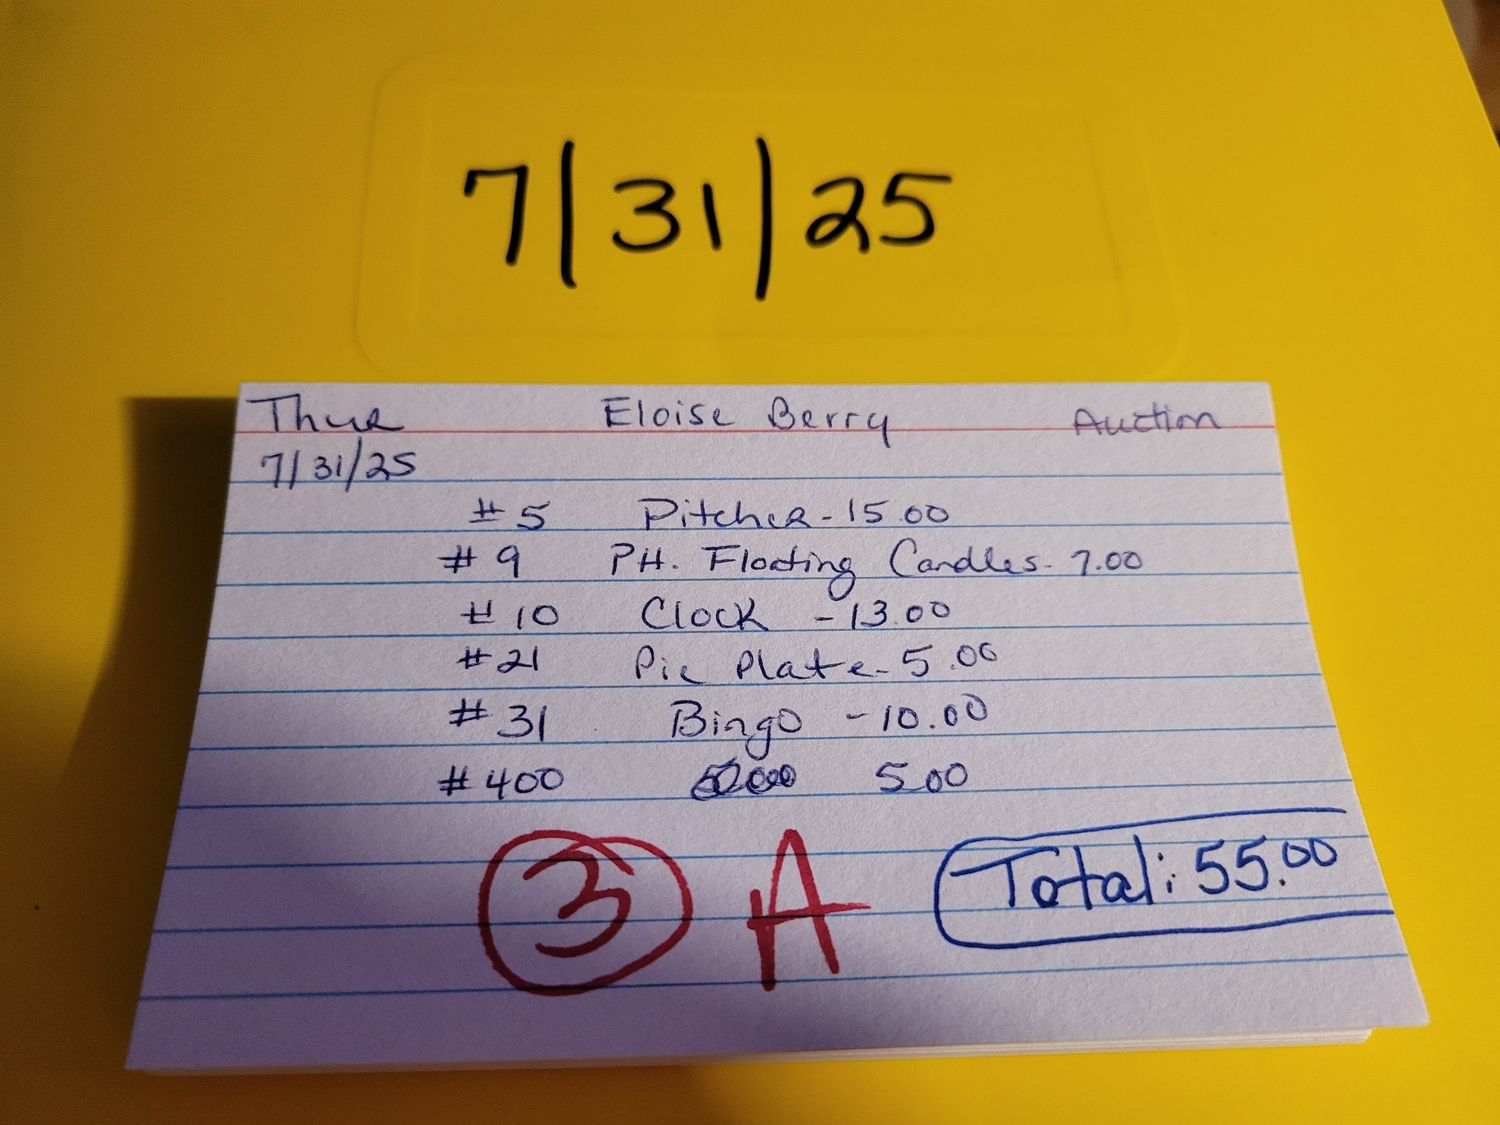 7/31/25
Thur Eloise Berry Auction
7/31/25
#5 Pitcher - 15.00
#9 PH. Floating Candles - 7.00
#10 Clock - 13.00
#21 Pie Plate - 5.00
#31 Bingo - 10.00
#400 5.00
3 A Total: 55.00